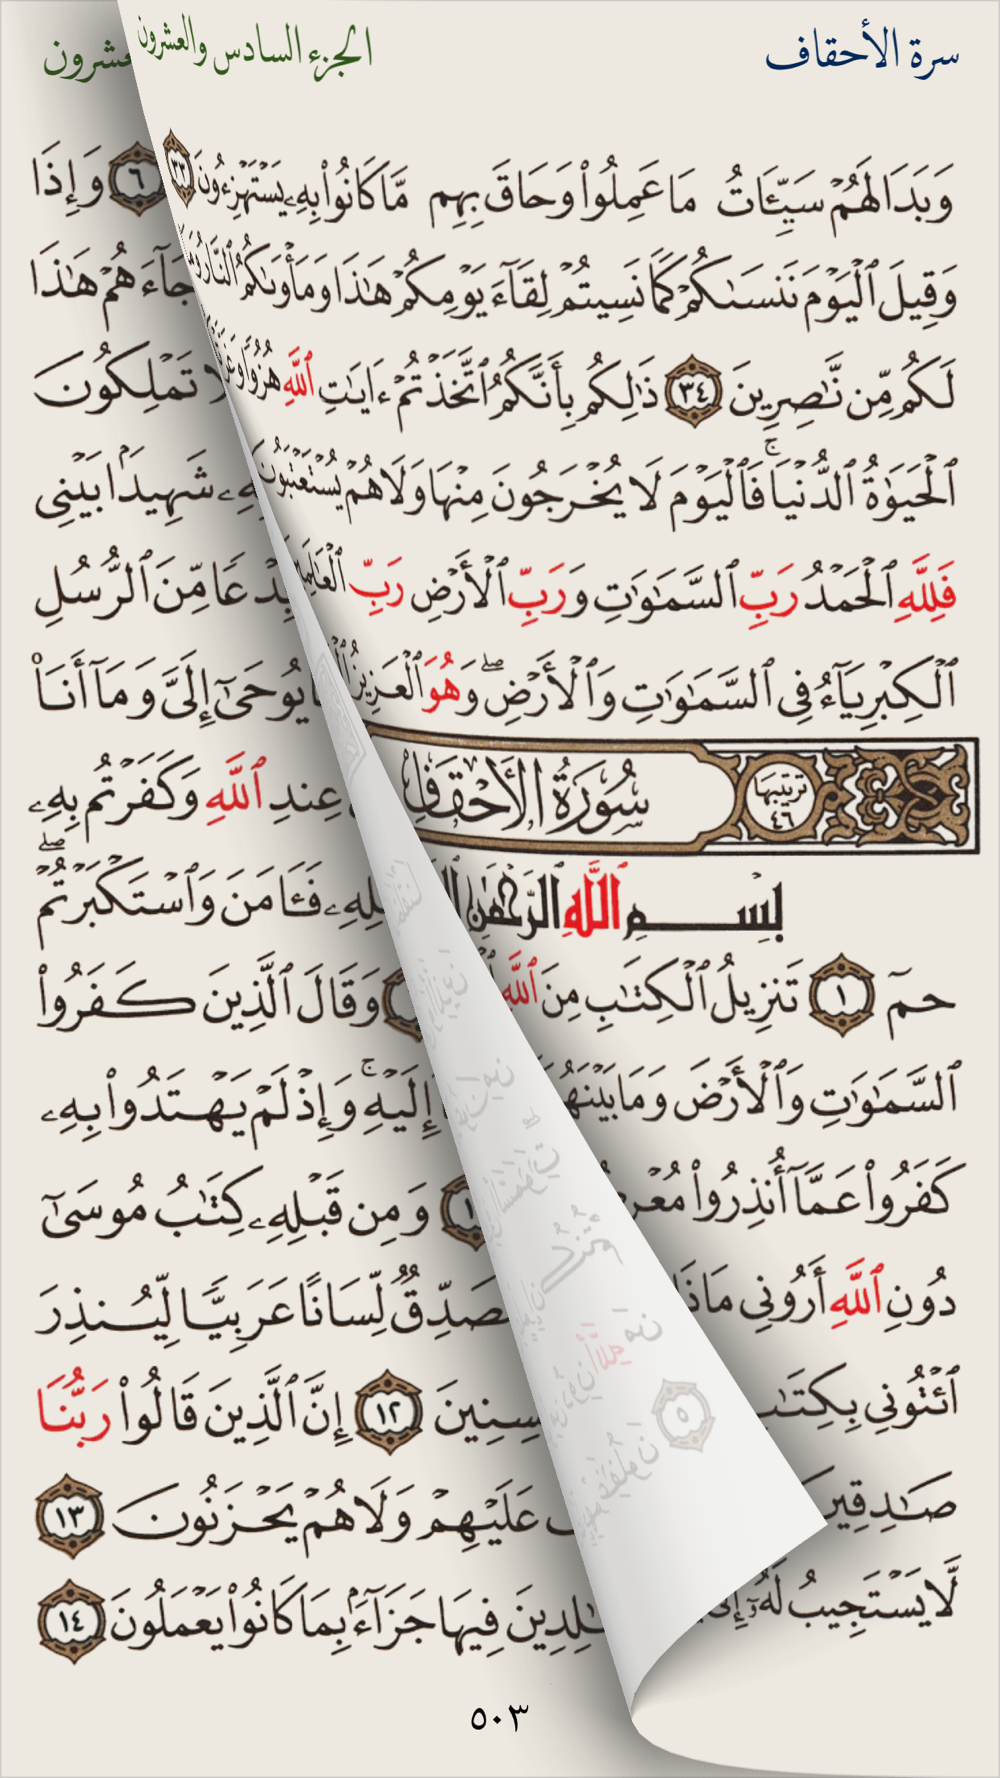 سرة الأحقاف
الجزء السادس والعشرون
وَبَدَا لَهُمْ سَيِّـَٔاتُ مَا عَمِلُوا۟ وَحَاقَ بِهِم مَّا كَانُوا۟ بِهِۦ يَسْتَهْزِءُونَ ٣٣
وَقِيلَ ٱلْيَوْمَ نَنسَىٰكُمْ كَمَا نَسِيتُمْ لِقَآءَ يَوْمِكُمْ هَـٰذَا وَمَأْوَىٰكُمُ ٱلنَّارُ
لَكُم مِّن نَّـٰصِرِينَ ٣٤ ذَٰلِكُم بِأَنَّكُمُ ٱتَّخَذْتُمْ ءَايَـٰتِ ٱللَّهِ هُزُوًا
ٱلْحَيَوٰةُ ٱلدُّنْيَا ۚ فَٱلْيَوْمَ لَا يُخْرَجُونَ مِنْهَا وَلَا هُمْ يُسْتَعْتَبُونَ
فَلِلَّهِ ٱلْحَمْدُ رَبِّ ٱلسَّمَـٰوَٰتِ وَرَبِّ ٱلْأَرْضِ رَبِّ ٱلْعَـٰلَمِينَ
ٱلْكِبْرِيَآءُ فِى ٱلسَّمَـٰوَٰتِ وَٱلْأَرْضِ ۖ وَهُوَ ٱلْعَزِيزُ
ترتيبها ٤٦ سُورَةُ الأَحْقَافِ
بِسْمِ ٱللَّهِ ٱلرَّحْمَـٰنِ
حمٓ ١ تَنزِيلُ ٱلْكِتَـٰبِ مِنَ ٱللَّهِ
ٱلسَّمَـٰوَٰتِ وَٱلْأَرْضَ وَمَا بَيْنَهُمَآ
كَفَرُوا۟ عَمَّآ أُنذِرُوا۟
دُونِ ٱللَّهِ أَرُونِى مَاذَا
ٱئْتُونِى بِكِتَـٰبٍ
صَـٰدِقِينَ
لَّا يَسْتَجِيبُ لَهُۥٓ إِلَىٰ
عشرون
٦ وَإِذَا
جَآءَهُمْ هَـٰذَا
تَمْلِكُونَ
شَهِيدًۢا بَيْنِى
بِدْعًا مِّنَ ٱلرُّسُلِ
يُوحَىٰٓ إِلَىَّ وَمَآ أَنَا۠
عِندِ ٱللَّهِ وَكَفَرْتُم بِهِۦ
فَـَٔامَنَ وَٱسْتَكْبَرْتُمْ ۖ
وَقَالَ ٱلَّذِينَ كَفَرُوا۟
إِلَيْهِ ۚ وَإِذْ لَمْ يَهْتَدُوا۟ بِهِۦ
وَمِن قَبْلِهِۦ كِتَـٰبُ مُوسَىٰٓ
مُّصَدِّقٌ لِّسَانًا عَرَبِيًّا لِّيُنذِرَ
١٢ إِنَّ ٱلَّذِينَ قَالُوا۟ رَبُّنَا
عَلَيْهِمْ وَلَا هُمْ يَحْزَنُونَ ١٣
فِيهَا جَزَآءًۢ بِمَا كَانُوا۟ يَعْمَلُونَ ١٤
٥٠٣